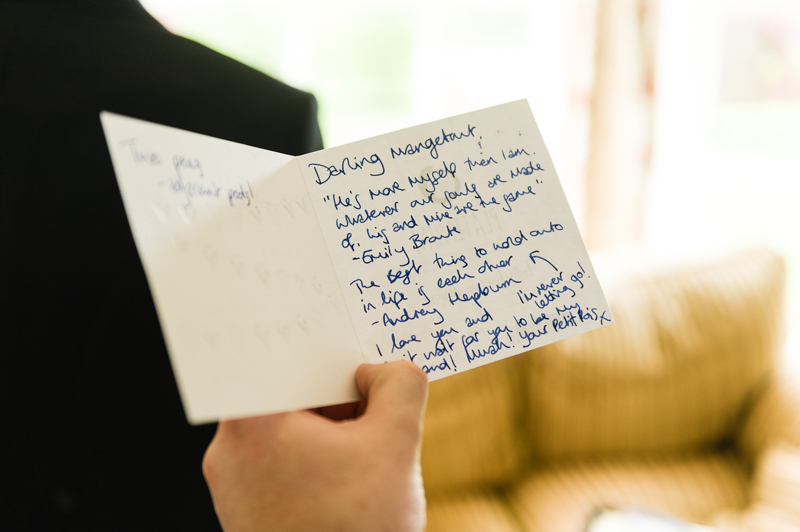 Two peas
- adjacent pods!
Darling Mangetout,
"He's more myself then I am.
Whatever our souls are made
of, his and mine are the same".
- Emily Bronte
The best thing to hold onto
in life is each other
- Audrey Hepburn I'm never
letting go!
I love you and
wait for you to be my
Mush! Your Petit Pois x